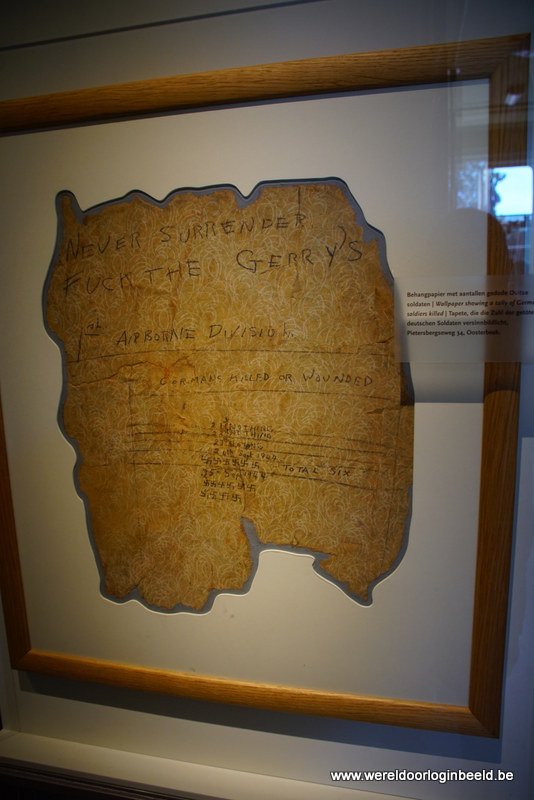 NEVER SURRENDER
FUCK THE GERRY'S
1ST AIRBORNE DIVISION.
GERMANS KILLED OR WOUNDED
1944
TOTAL SIX
1944
Behangpapier met aantallen gedode Duitse
soldaten | Wallpaper showing a tally of Germ
soldiers killed | Tapete, die die Zahl der getöte
deutschen Soldaten versinnbildlicht,
Pietersbergseweg 34, Oosterbeek.
www.wereldoorloginbeeld.be